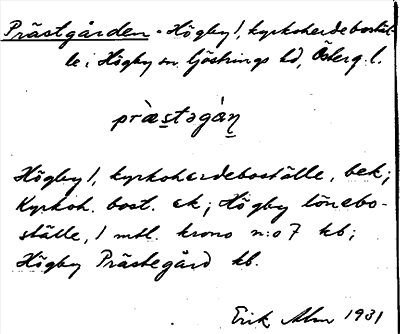 Prästgården - Högby 1, kyrkoherdebostäl-
le i Högby sn. Göstrings hd, Österg. l.
prästəgán
Högby 1, kyrkoherdeboställe, bek;
Kyrkoh. bost. ek; Högby lönebo-
ställe, 1 mtl. krono n:o 7 kb;
Högby Prästegård kb.
Erik Alm 1931